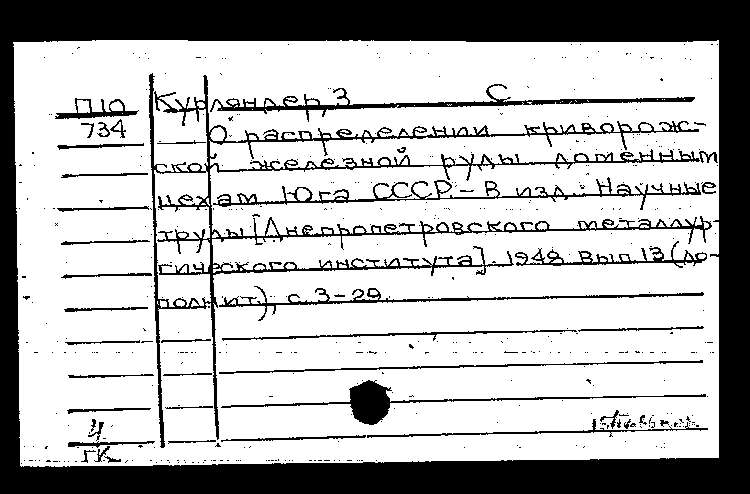 П10 Курляндер, З С
734 О распределении криворож-
ской железной руды доменным
цехам Юга СССР.- В изд.: Научные
труды [Днепропетровского металлур-
гического института]. 1948. Вып.13 (до-
полнит), с. 3-29.
4
ГК